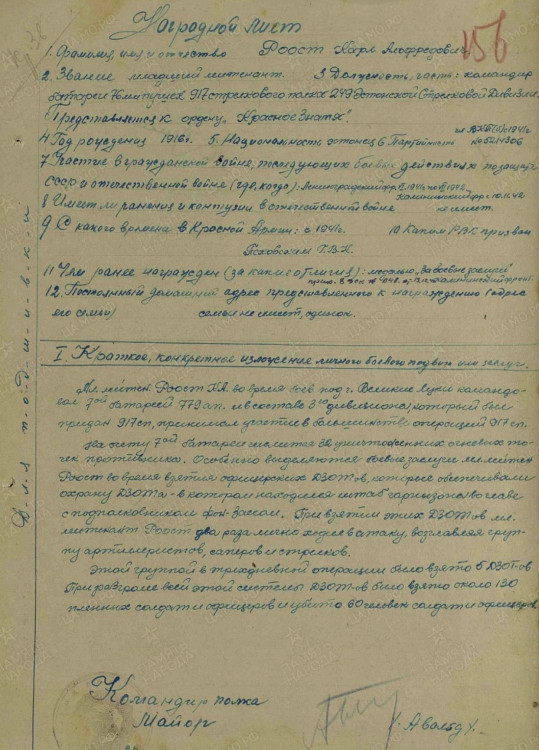 Наградной лист
156
1. Фамилия, имя и отчество Роост Карл Альфредович
2. Звание младший лейтенант. 3. Должность, часть: командир
батареи 76 м/м пушек 917 стрелкового полка 249 Эстонской Стрелковой Дивизии.
Представляется к ордену "Красное Знамя".
4. Год рождения 1916г. 5. Национальность эстонец 6. Партийность
чл ВКП(б) с 1941г. № 5214306
7. Участие в гражданской войне, последующих боевых действиях по защите
СССР и отечественной войне (где, когда):
8. Имеет ли ранения и контузии в отечественной войне не имеет.
9. С какого времени в Красной Армии: с 1941г. 10. Каким РВК призван
Псковским Г.В.К.
11. Чем ранее награжден (за какие отличия): медалью "За боевые заслуги"
12. Постоянный домашний адрес представленного к награждению (адрес
его семьи) семьи не имеет, одинок.
I. Краткое, конкретное изложение личного боевого подвига или заслуг.
Мл. лейтен. Роост К.А. во время боев под г. Великие Луки командо-
вал 7ой батареей 779 ап. и в составе 3го дивизиона, который был
придан 917 сп, принимал участие в большинстве операций 917 сп.
На счету 7ой батареи имеется 32 уничтоженных основных то-
чек противника. Особенно выделяются боевые заслуги мл. лейтен.
Роост во время взятия офицерских ДЗОТ-ов, которые обеспечивали
охрану ДЗОТа - в котором находился штаб гарнизона во главе
с подполковником фон-Засом. При взятии этих ДЗОТ-ов мл.
лейтенант Роост два раза лично ходил в атаку, возглавляя груп-
пу артиллеристов, саперов и стрелков.
Этой группой в трехдневной операции было взято 5 ДЗОТ-ов
При разгроме всей этой системы ДЗОТ-ов было взято около 130
пленных солдат и офицеров и убито 60 человек солдат и офицеров.
Командир полка
Майор
Для подшивки